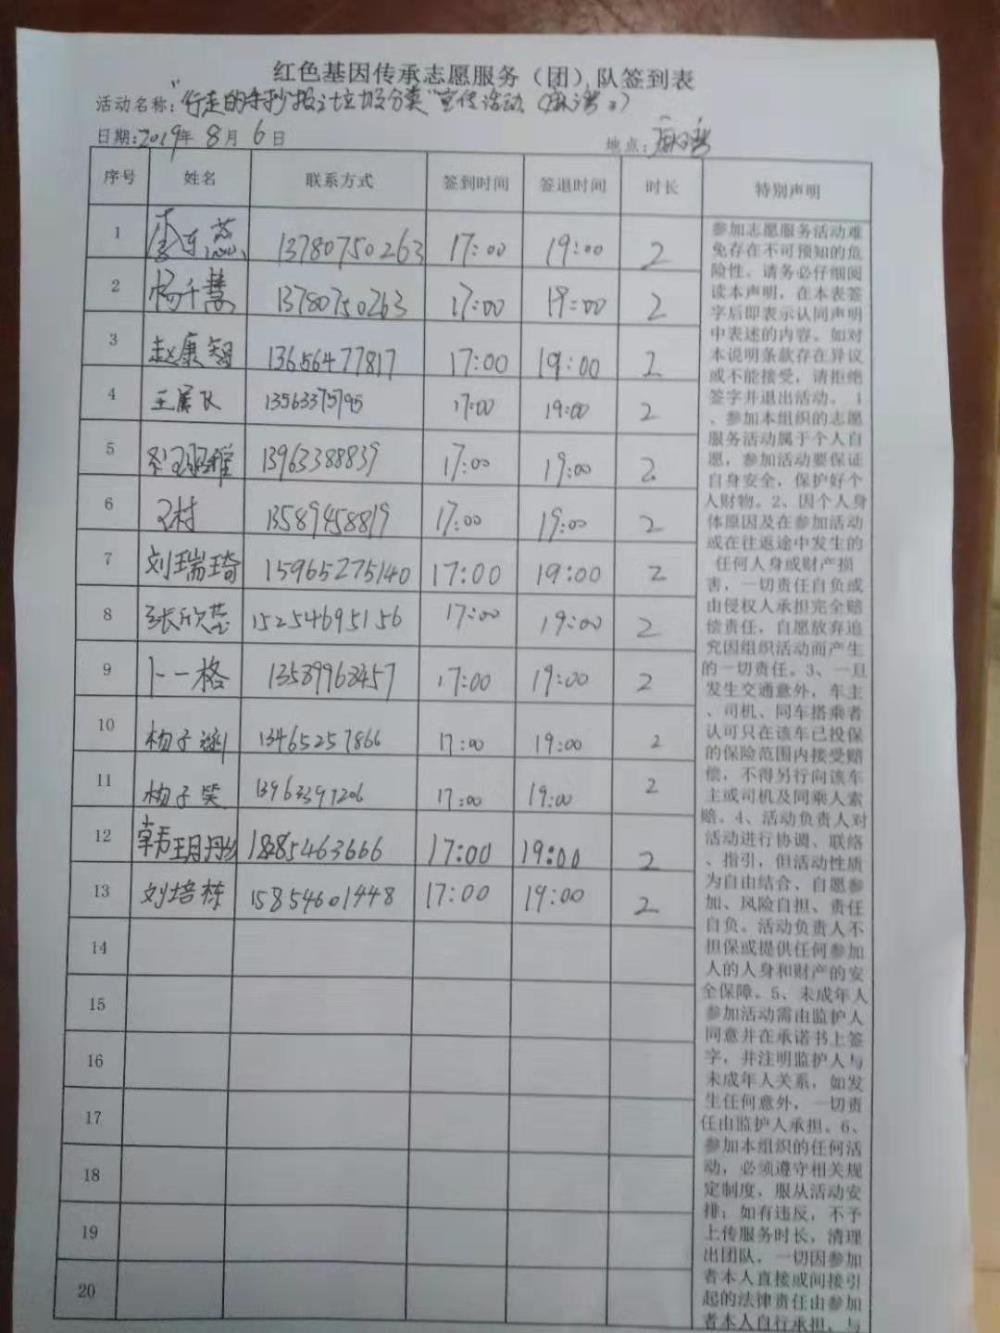 红色基因传承志愿服务（团）队签到表
活动名称:"行走的手抄报之垃圾分类"宣传活动
日期:2019年 8月 6日 地点:
序号 姓名 联系方式 签到时间 签退时间 时长 特别声明
1 13780750263 17:00 19:00 2
2 杨千慧 13780750263 17:00 19:00 2
3 赵康智 13656477817 17:00 19:00 2
4 13563375795 17:00 19:00 2
5 13963388839 17:00 19:00 2
6 13589458819 17:00 19:00 2
7 刘瑞琦 15965275140 17:00 19:00 2
8 15254695156 17:00 19:00 2
9 卜一格 17:00 19:00 2
10 13465257866 17:00 19:00 2
11 杨子笑 13963391206 17:00 19:00 2
12 17:00 19:00 2
13 刘培栋 15854601448 17:00 19:00 2
14
15
16
17
18
19
20
参加志愿服务活动难
免存在不可预知的危
险性。请务必仔细阅
读本声明，在本表签
字后即表示认同声明
中表述的内容。如对
本说明条款存在异议
或不能接受，请拒绝
签字并退出活动。1
、参加本组织的志愿
服务活动属于个人自
愿，参加活动要保证
自身安全，保护好个
人财物。2、因个人身
体原因及在参加活动
或在往返途中发生的
任何人身或财产损
害，一切责任自负或
由侵权人承担完全赔
偿责任，自愿放弃追
究因组织活动而产生
的一切责任。3、一旦
发生交通意外，车主
、司机、同车搭乘者
认可只在该车已投保
的保险范围内接受赔
偿，不得另行向该车
主或司机及同乘人索
赔。4、活动负责人对
活动进行协调、联络
、指引，但活动性质
为自由结合、自愿参
加、风险自担、责任
自负。活动负责人不
担保或提供任何参加
人的人身和财产的安
全保障。5、未成年人
参加活动需由监护人
同意并在承诺书上签
字，并注明监护人与
未成年人关系，如发
生任何意外，一切责
任由监护人承担。6、
参加本组织的任何活
动，必须遵守相关规
定制度，服从活动安
排；如有违反，不予
上传服务时长，清理
出团队，一切因参加
者本人直接或间接引
起的法律责任由参加
者本人自行承担，与